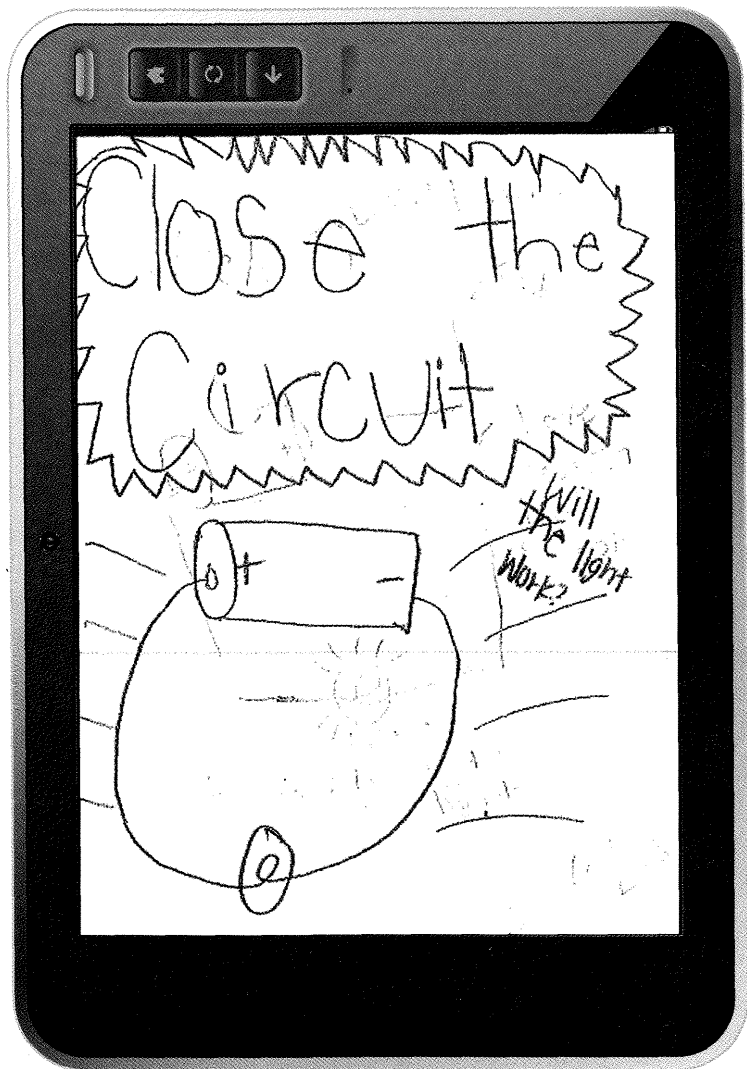 Close the
Circuit
Will
the light
Work?
+
-